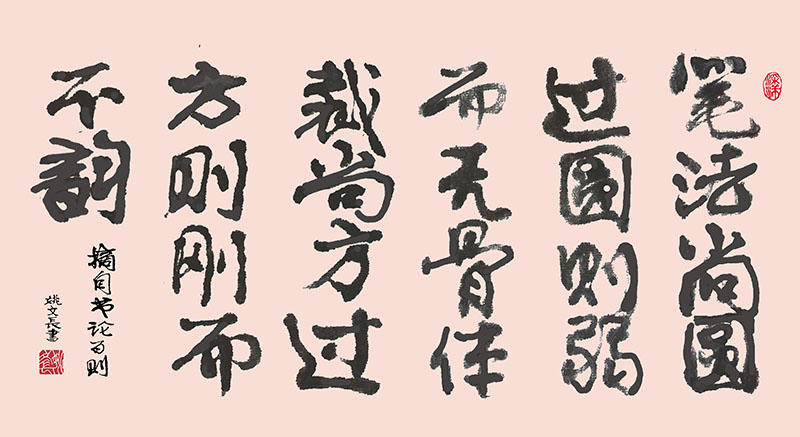 笔法尚圆
过圆则弱
而无骨体
裁尚方过
方则刚而
不韵
摘自书论百则
姚文长书